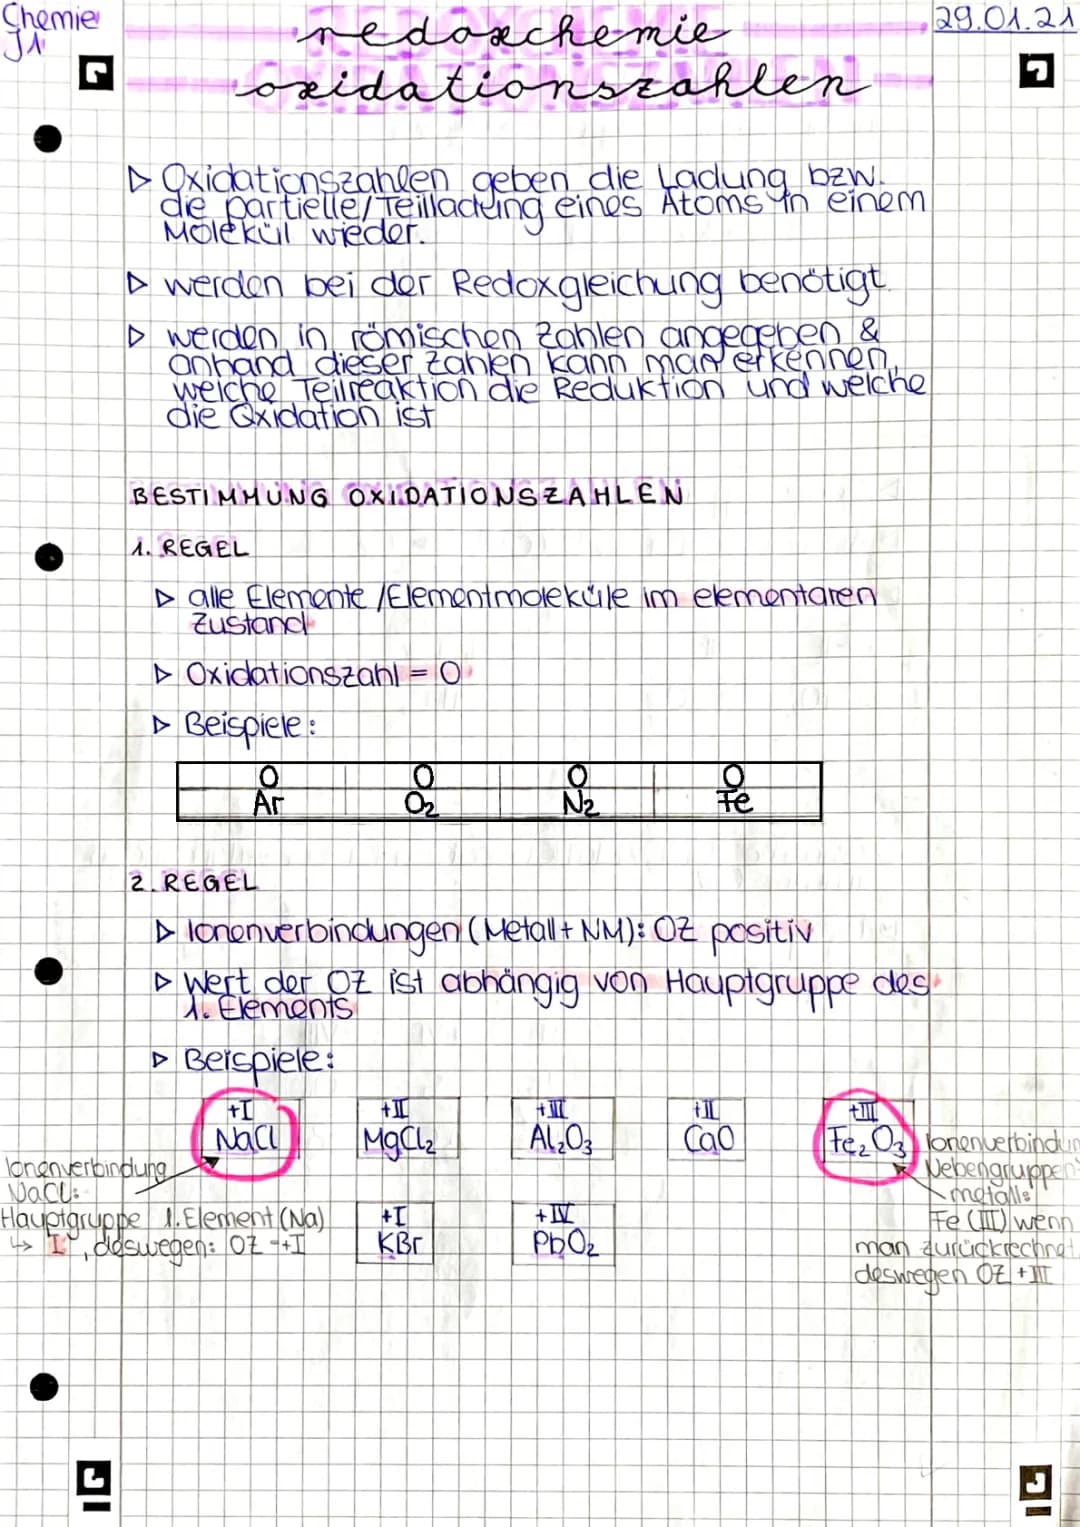 Chemie
J1
29.01.21
redoxchemie
oxidationszahlen
▷ Oxidationszahlen geben die Ladung bzw.
die partielle/Teilladung eines Atoms in einem
Molekül wieder.
▷ werden bei der Redoxgleichung benötigt
▷ werden in römischen Zahlen angegeben &
anhand dieser Zahlen kann man erkennen,
welche Teilreaktion die Reduktion und welche
die Oxidation ist
BESTIMMUNG OXIDATIONSZAHLEN
1. REGEL
▷ alle Elemente /Elementmoleküle im elementaren
Zustand
▷ Oxidationszahl = 0
▷ Beispiele:
0 0 0 0
Ar O₂ N₂ Fe
2. REGEL
▷ Ionenverbindungen (Metall + NM): OZ positiv
▷ Wert der OZ ist abhängig von Hauptgruppe des
1. Elements
▷ Beispiele:
+I +II +III +II +III
NaCl MgCl₂ Al₂O₃ CaO Fe₂O₃
Ionenverbindung
NaCl:
Hauptgruppe 1. Element (Na)
↳ I, deswegen: OZ = +I
+I +IV
KBr PbO₂
Ionenverbindun
Nebengruppen
metalls
Fe (III) wenn
man zurückrechnet
deswegen OZ +III